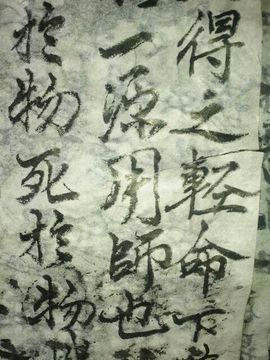 得之輕命下
一源用師也
扵物死扵物